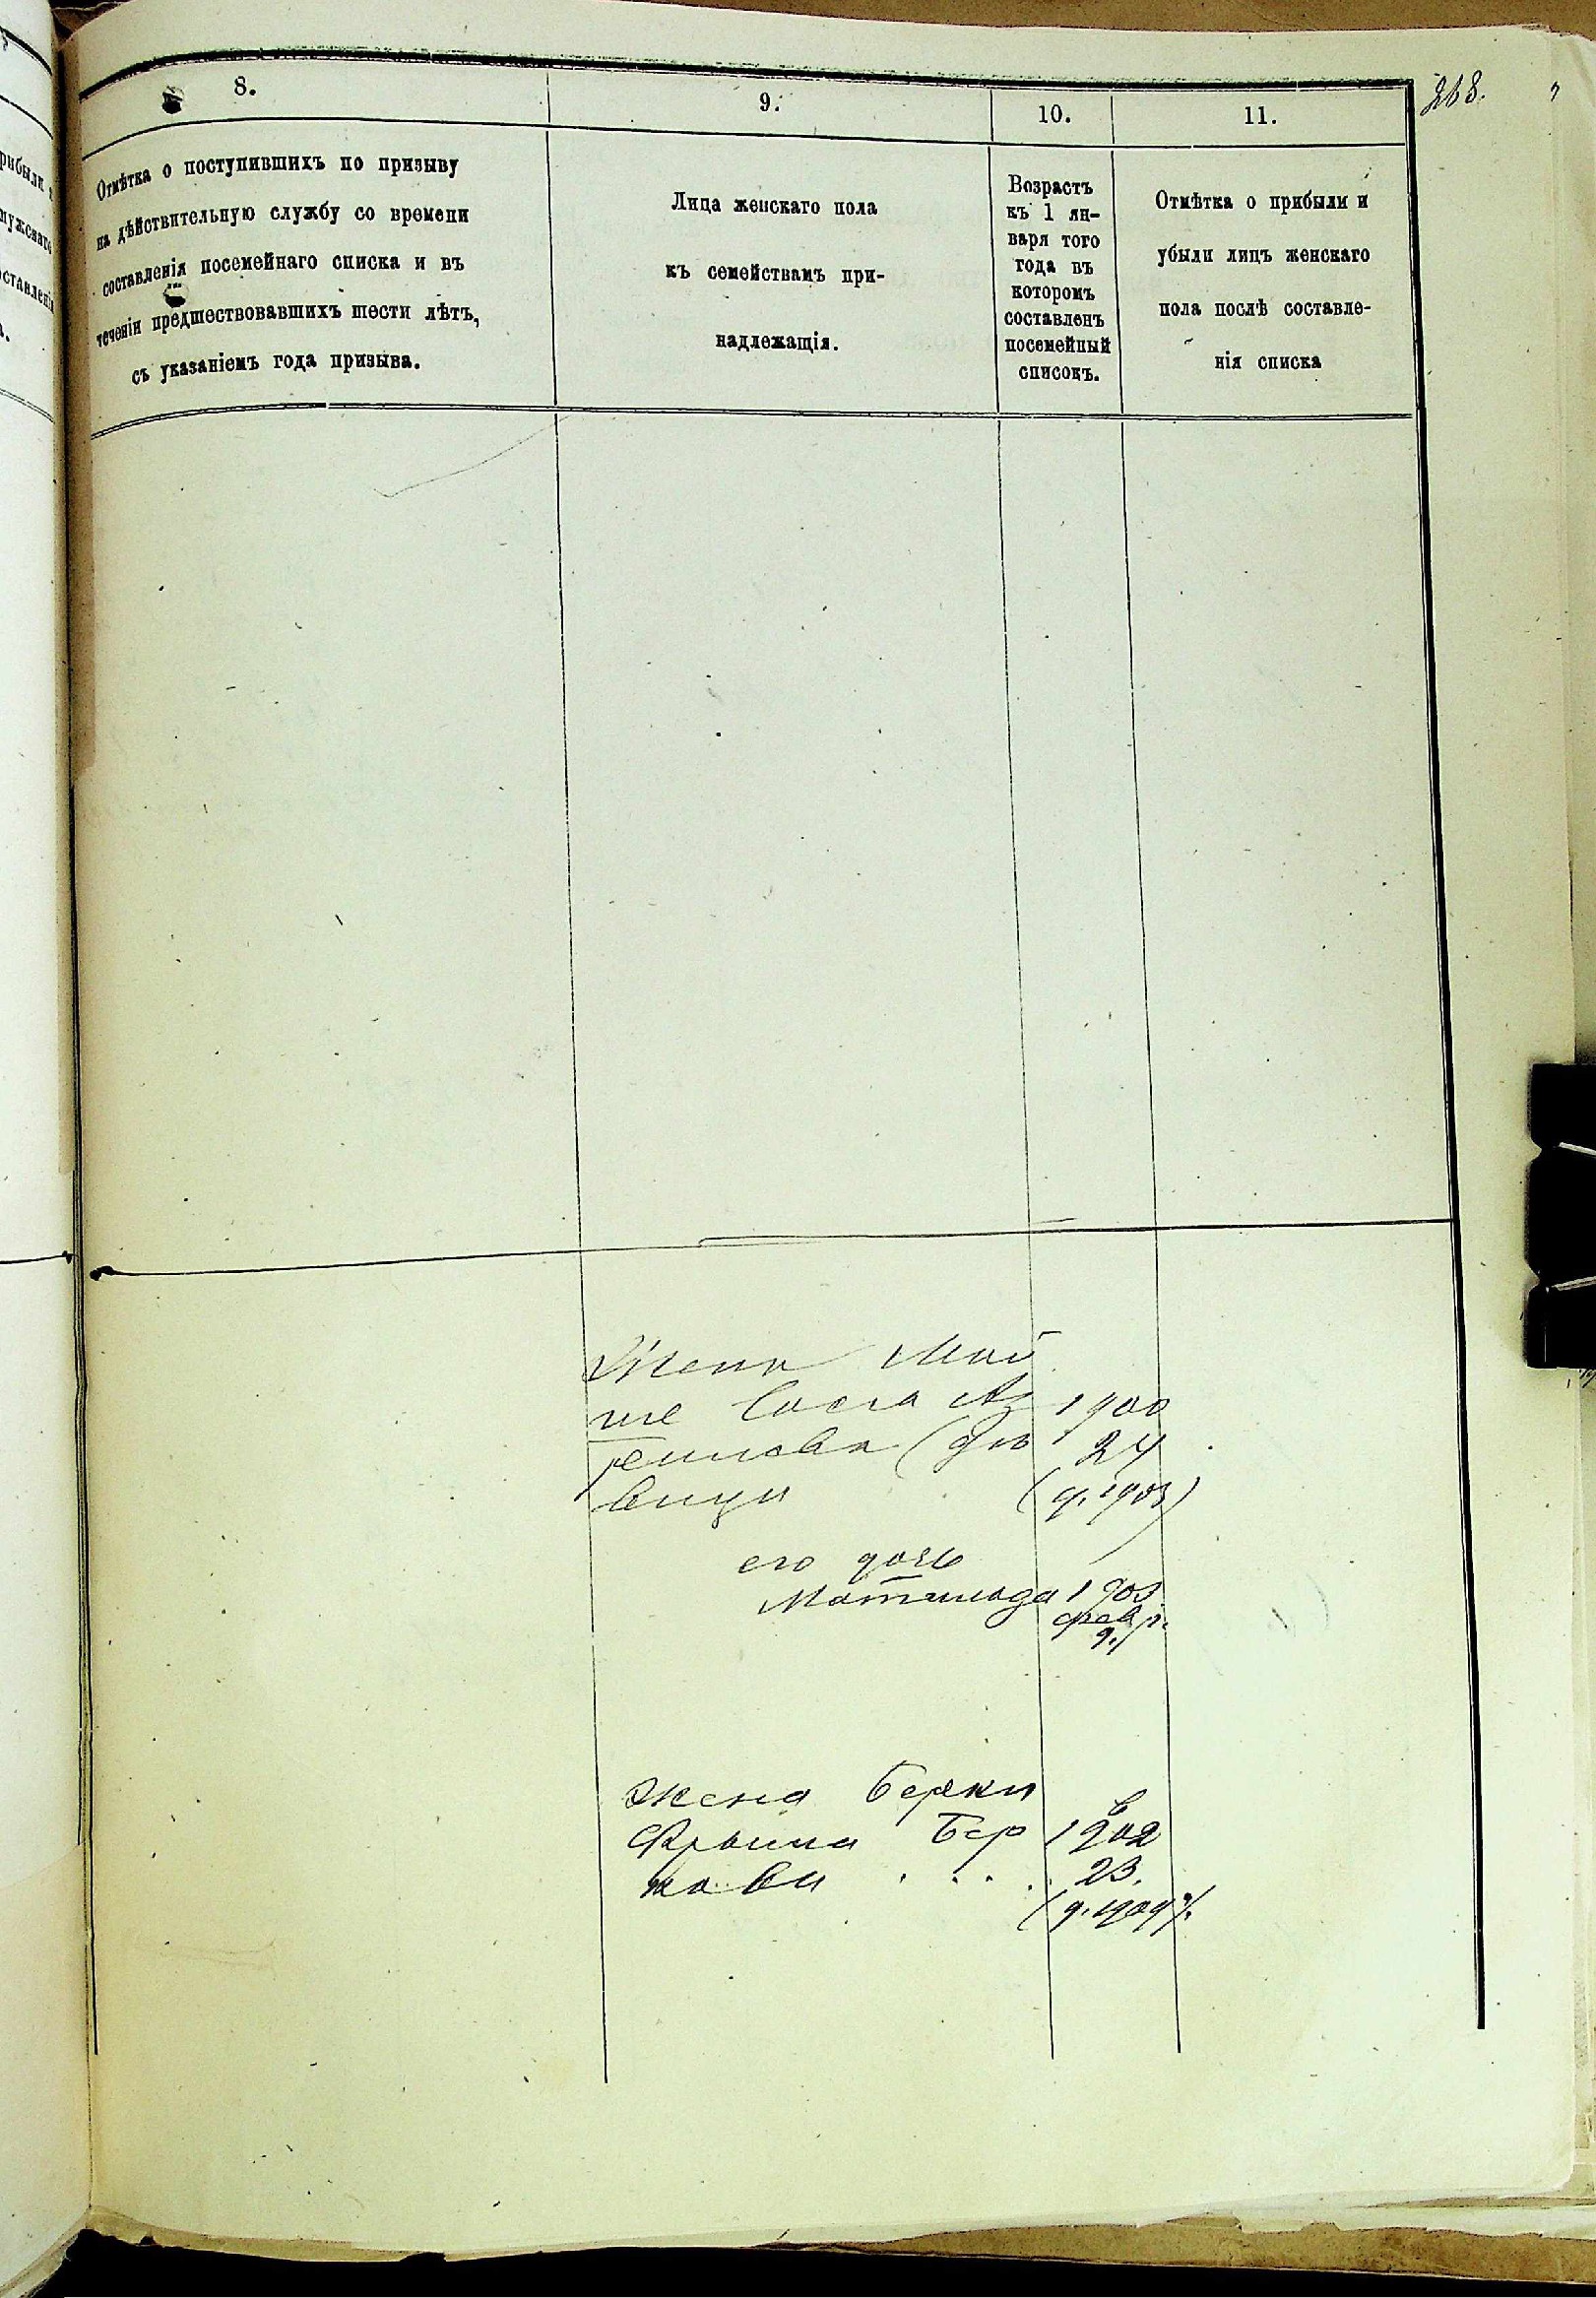 268.
8.
9.
10.
11.
Отмѣтка о поступившихъ по призыву
на дѣйствительную службу со времени
составленія посемейнаго списка и въ
теченіи предшествовавшихъ шести лѣтъ,
съ указаніемъ года призыва.
Лица женскаго пола
къ семействамъ при-
надлежащія.
Возрастъ
къ 1 ян-
варя того
года въ
которомъ
составленъ
посемейный
списокъ.
Отмѣтка о прибыли и
убыли лицъ женскаго
пола послѣ составле-
нія списка
Жена Мов
ше 1900
24
вица
его дочь
Матильда
Жена Берки
Бер 1902
кова 23.